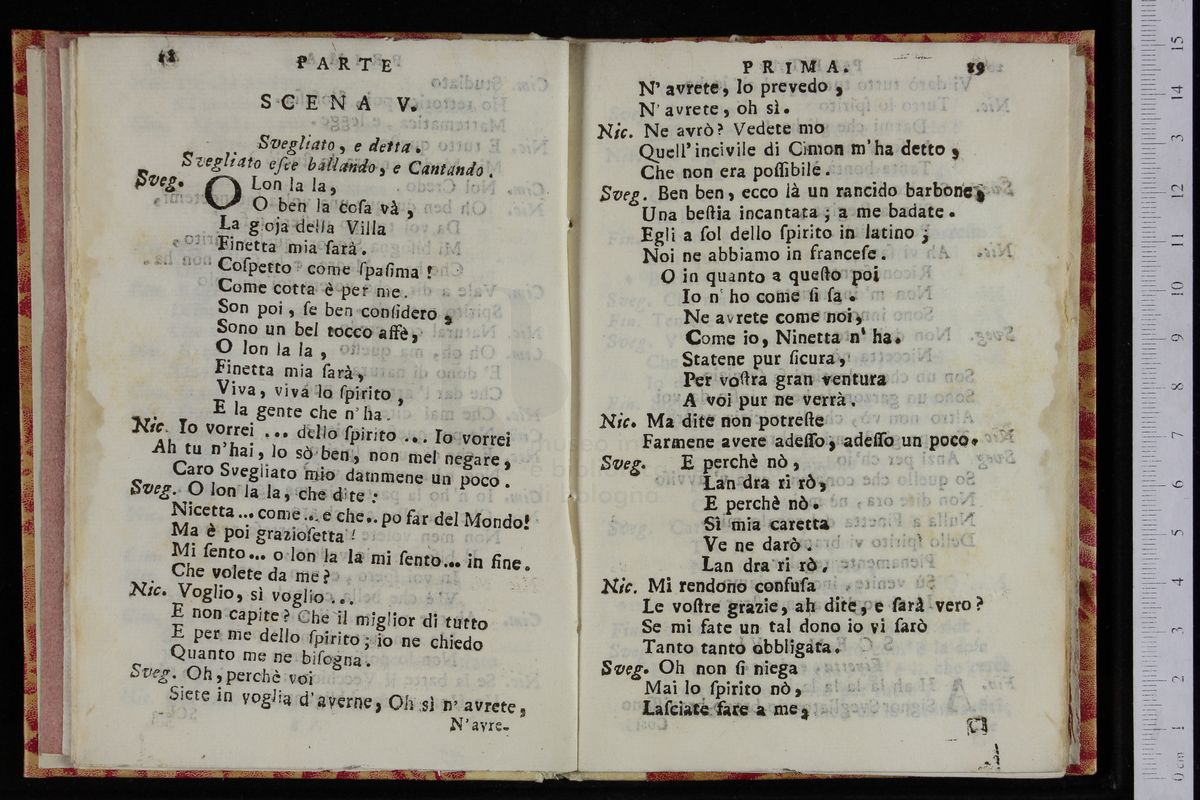 18
PARTE
SCENA V.
Svegliato, e detta.
Svegliato eſce ballando, e Cantando.
Sveg. O Lon la la,
O ben la coſa và,
La gioja della Villa
Finetta mia ſarà.
Coſpetto come ſpaſima!
Come cotta è per me.
Son poi, ſe ben conſidero,
Sono un bel tocco affè,
O lon la la,
Finetta mia ſarà,
Viva, viva lo ſpirito,
E la gente che n'ha.
Nic. Io vorrei ... dello ſpirito ... Io vorrei
Ah tu n'hai, lo sò ben, non mel negare,
Caro Svegliato mio dammene un poco.
Sveg. O lon la la, che dite?
Nicetta... come... e che.. po far del Mondo!
Ma è poi grazioſetta!
Mi ſento... o lon la la mi ſento... in fine.
Che volete da me?
Nic. Voglio, sì voglio...
E non capite? Che il miglior di tutto
E per me dello ſpirito; io ne chiedo
Quanto me ne biſogna.
Sveg. Oh, perchè voi
Siete in voglia d'averne, Oh sì n' avrete,
N'avre-
PRIMA.
19
N' avrete, lo prevedo,
N' avrete, oh sì.
Nic. Ne avrò? Vedete mo
Quell' incivile di Cimon m'ha detto,
Che non era poſſibile.
Sveg. Ben ben, ecco là un rancido barbone,
Una beſtia incantata; a me badate.
Egli a ſol dello ſpirito in latino;
Noi ne abbiamo in franceſe.
O in quanto a queſto poi
Io n' ho come ſi ſa.
Ne avrete come noi,
Come io, Ninetta n' ha.
Statene pur ſicura,
Per voſtra gran ventura
A voi pur ne verrà.
Nic. Ma dite non potreſte
Farmene avere adeſſo, adeſſo un poco.
Sveg. E perchè nò,
Lan dra ri rò,
E perchè nò.
Sì mia caretta
Ve ne darò.
Lan dra ri rò.
Nic. Mi rendono confuſa
Le voſtre grazie, ah dite, e ſarà vero?
Se mi fate un tal dono io vi ſarò
Tanto tanto obbligata.
Sveg. Oh non ſi niega
Mai lo ſpirito nò,
Laſciate fare a me,